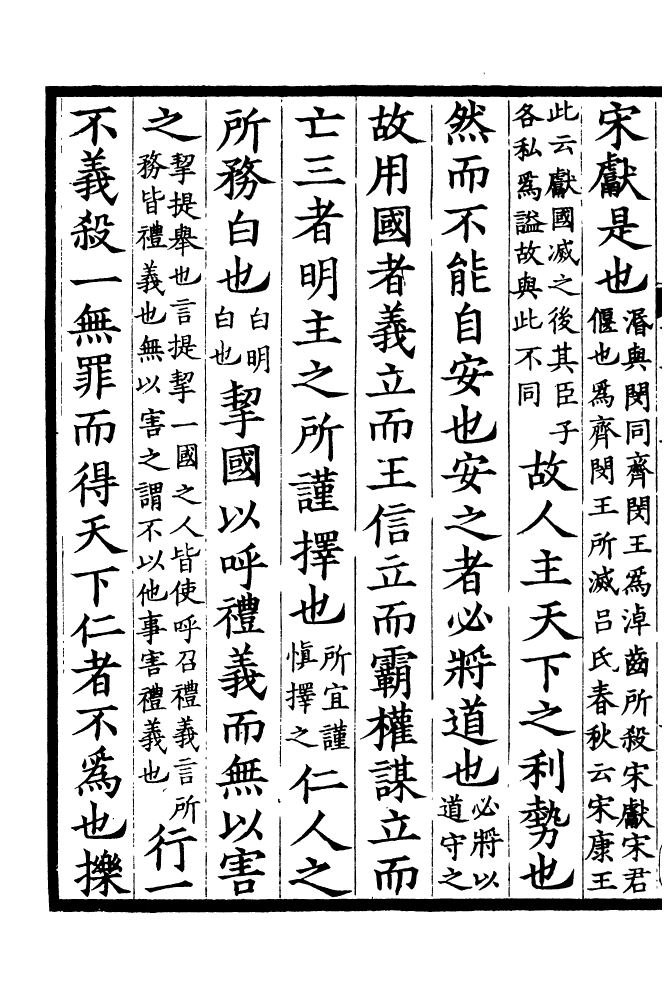 宋獻是也湣與閔同齊閔王爲淖齒所殺宋獻宋君偃也爲齊閔王所滅吕氏春秋云宋康王
此云獻國滅之後其臣子各私爲諡故與此不同故人主天下之利勢也
然而不能自安也安之者必將道也必將以道守之
故用國者義立而王信立而霸權謀立而
亡三者明主之所謹擇也所宜謹慎擇之仁人之
所務白也白明白也挈國以呼禮義而無以害
之挈提舉也言提挈一國之人皆使呼召禮義言所務皆禮義也無以害之謂不以他事害禮義也行一
不義殺一無罪而得天下仁者不爲也擽